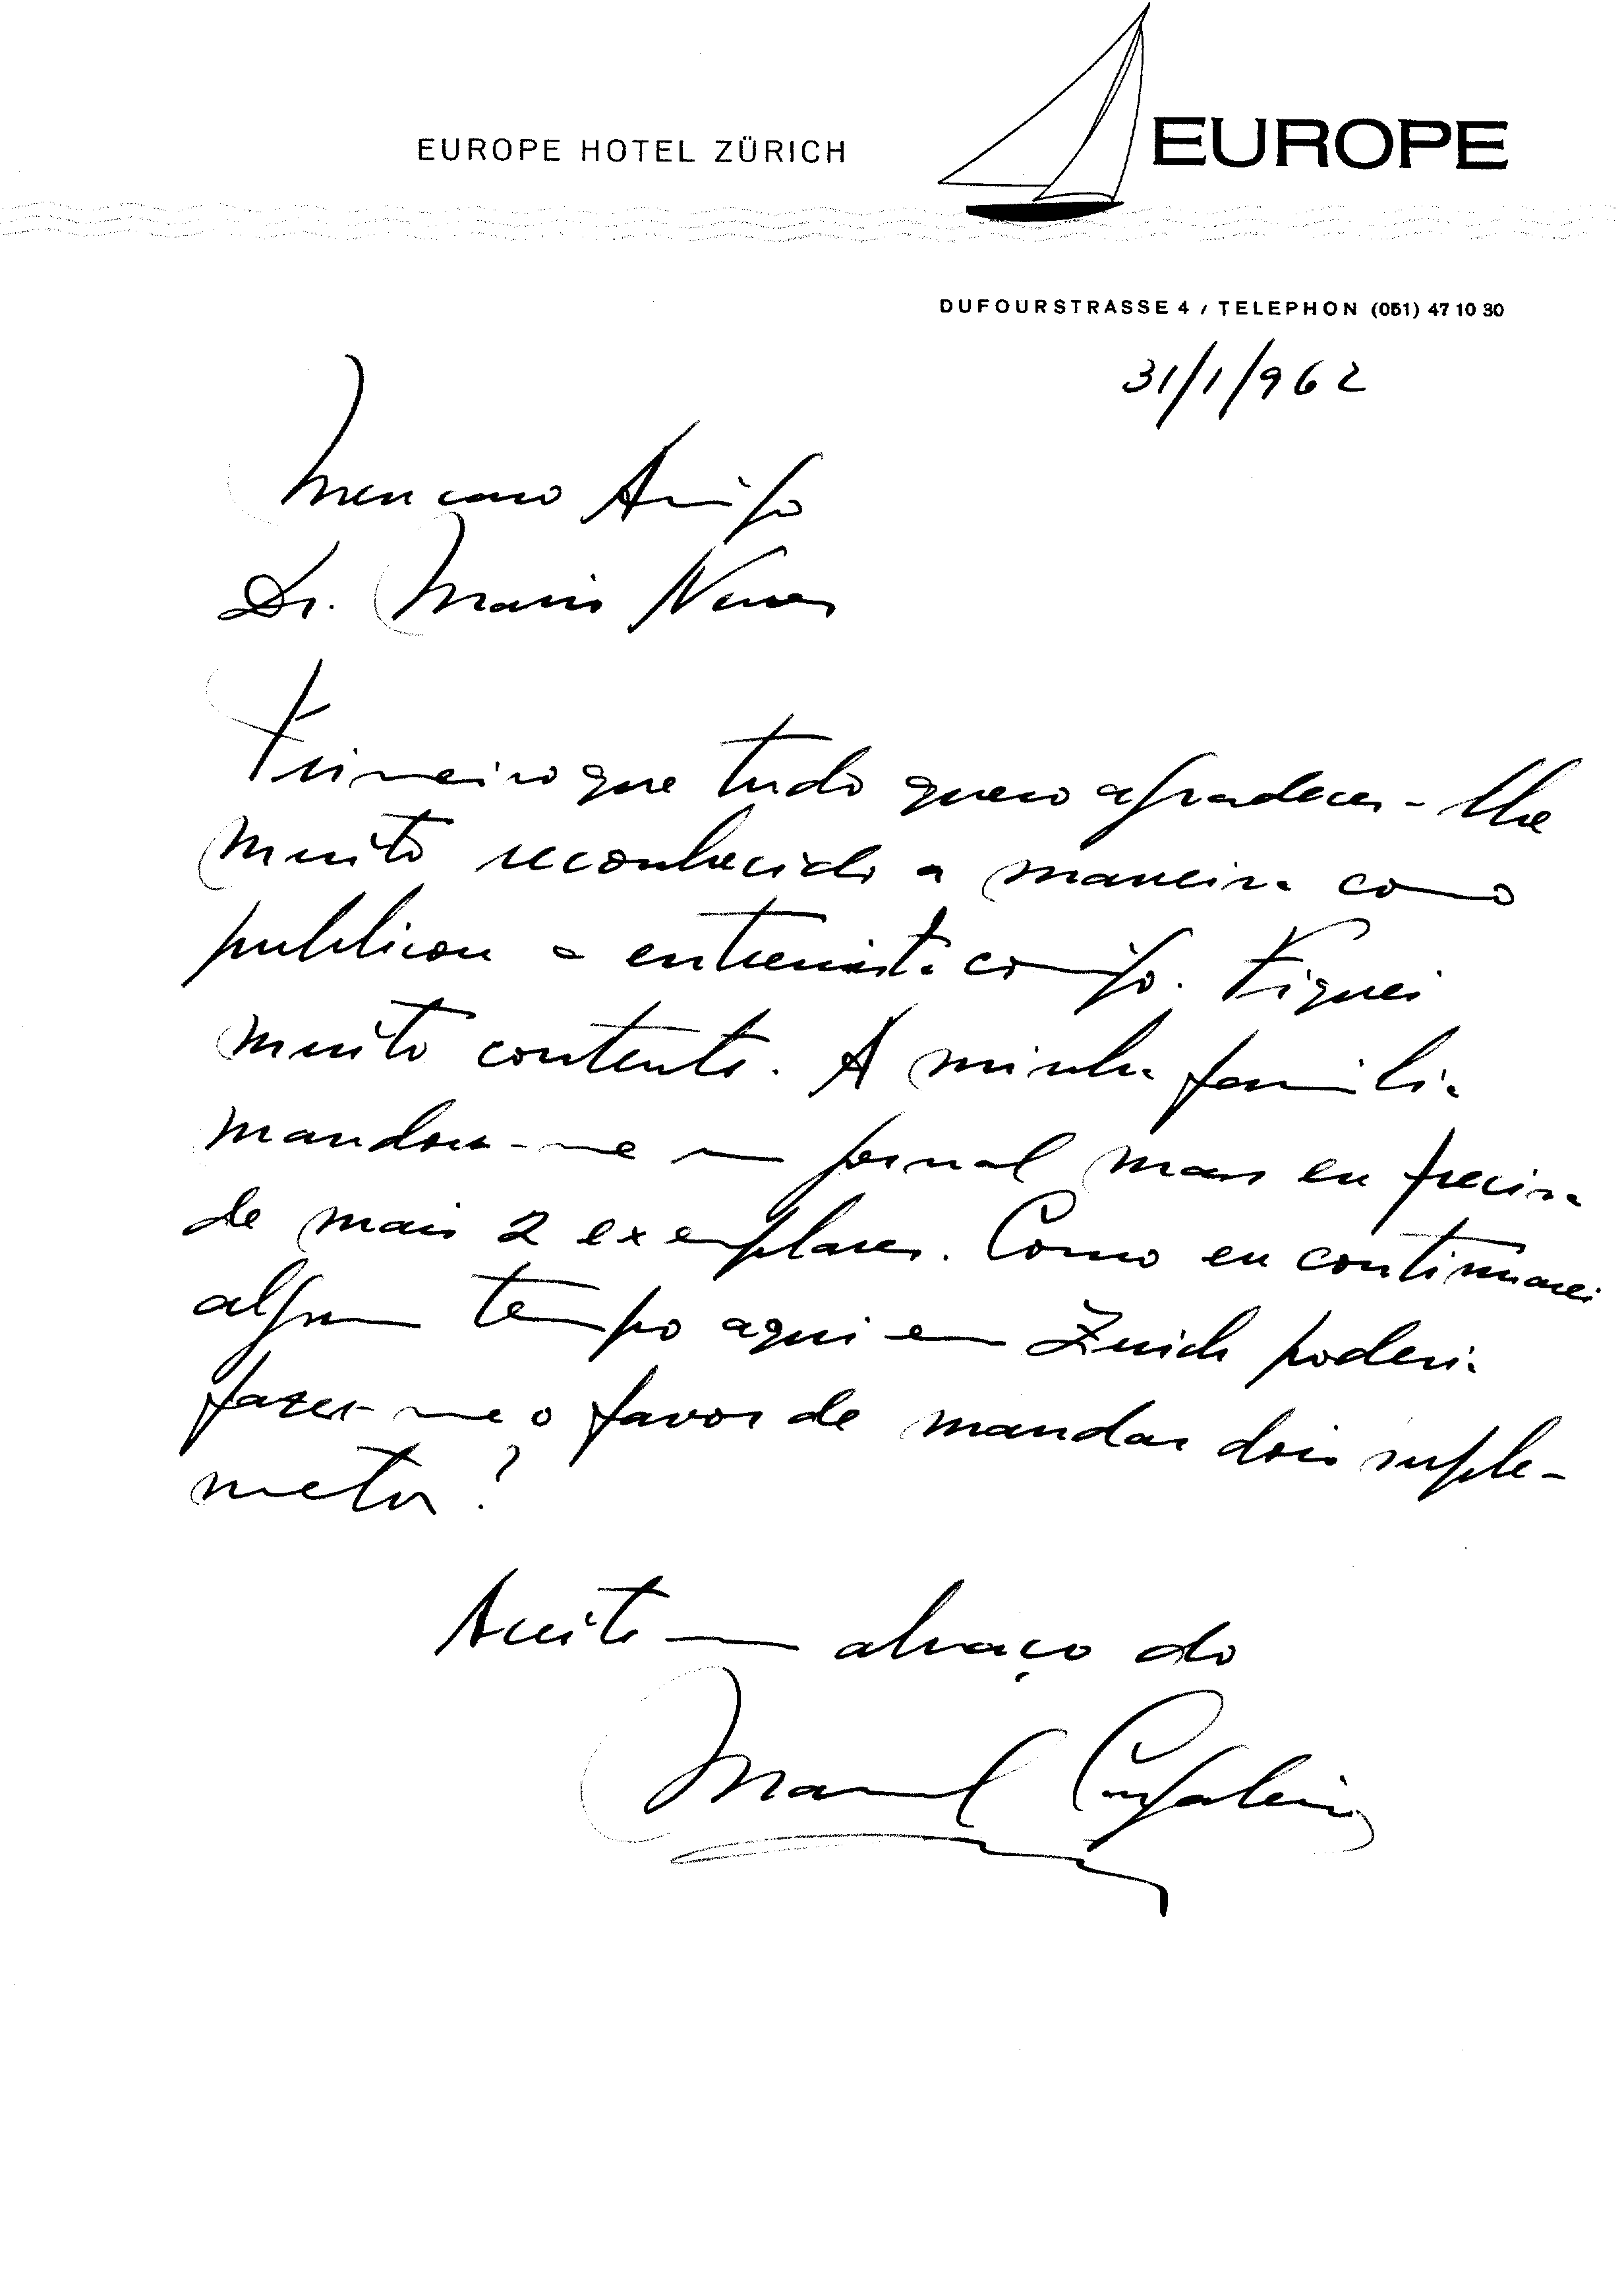 EUROPE HOTEL ZÜRICH
EUROPE
DUFOURSTRASSE 4 / TELEPHON (051) 47 10 30
31/1/962
Meu caro Amigo
Dr. Mario Neves
Primeiro que tudo quero agradecer-lhe
muito reconhecido a maneira como
publicou a entrevista comigo. Fiquei
muito contente. A minha familia
mandou-me um jornal mas eu precisava
de mais 2 exemplares. Como eu continuarei
algum tempo aqui em Zurich poderia
fazer-me o favor de mandar dois suple-
mentos?
Aceite um abraço do
Manuel